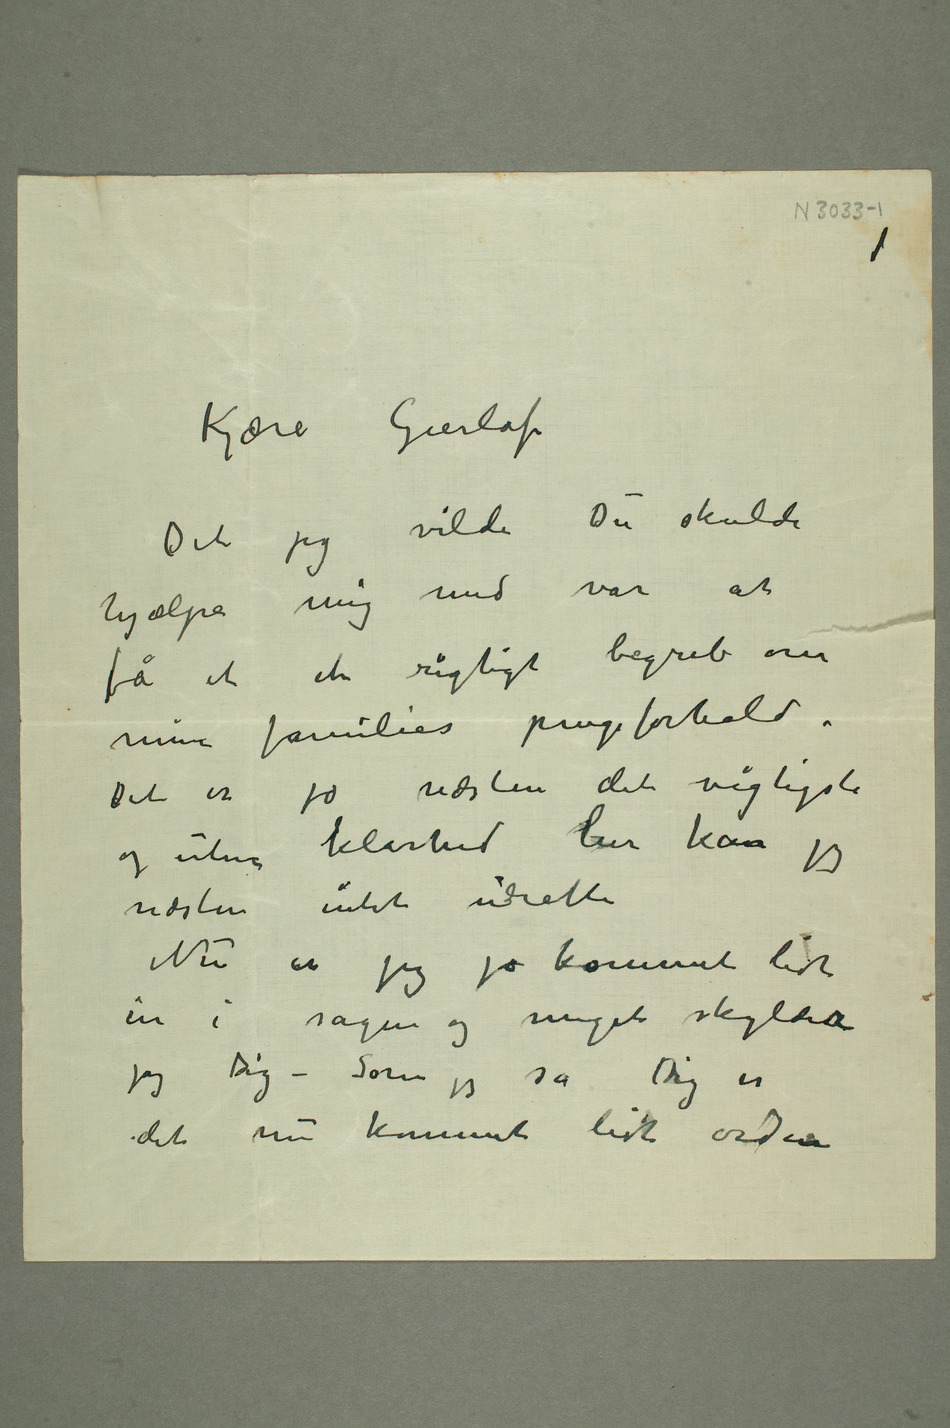 N 3033-1
1
Kjære Gierløf
Det jeg vilde Du skulde
hjælpe mig med var at
få et et rigtigt begreb over
mine families pengeforhold.
Det er jo næsten det vigtigste
og uten klarhed her kan jeg
næsten intet udrette
Nu er jeg jo kommet lidt
in i sagen og meget skylder
jeg Dig – Som jeg sa Dig er
det nu kommet lidt orden